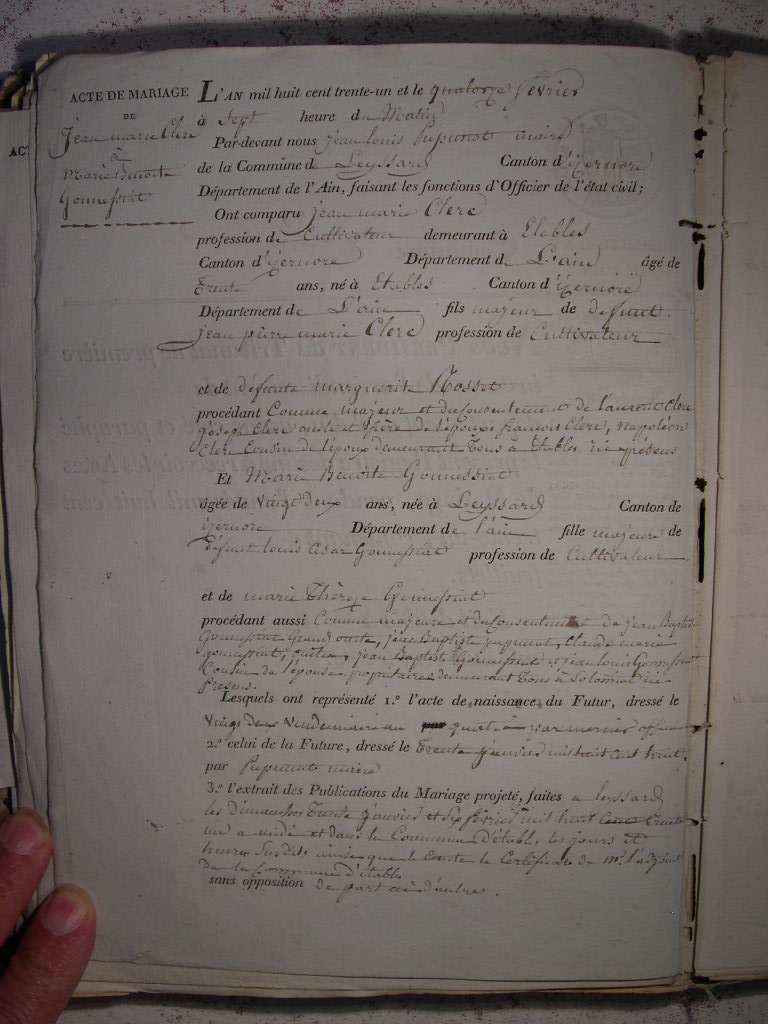 ACTE DE MARIAGE
DE
Jean marie Clerc
à
Marie Benoite
Gonnessiat
L'AN mil huit cent trente-un et le quatorze février
à sept heure du Matin
Par-devant nous jean louis maire
de la Commune de Leyssard Canton d'izernore
Département de l'Ain, faisant les fonctions d'Officier de l'état civil;
Ont comparu jean marie Clerc
profession de Cultivateur demeurant à Etables
Canton d'izernore Département de L'ain âgé de
Trente ans, né à Etables Canton d'izernore
Département de L'ain fils majeur de deffunt
jean pierre marie Clerc profession de Cultivateur
et de défunte marguerite Rosset
procédant Comme majeur et du Consentement de laurent Clerc
joseph Clerc oncle et frère de l'époux francois Clerc, napoléon
Clerc Cousin de l'époux demeurant Tous à Etables ici présens
Et Marie Benoite Gonnessiat
âgée de Vingt deux ans, née à Leyssard Canton de
izernore Département de l'ain fille majeure de
défunt louis Cesar Gonnessiat profession de Cultivateur
et de marie Thérèze Gonnessiat
procédant aussi Comme majeure et du Consentement de jean Baptiste
Gonnessiat Grand oncle, jean Baptiste Claude marie
gonnessiat, oncles, jean Baptiste Gonnessiat et jean louis Gonnessiat
Cousin de l'épouse propriétaires demeurant Tous à Solomiat ici
Présens.
Lesquels ont représenté 1.º l'acte de naissance du Futur, dressé le
Vingt deux Vendemiaire an quatre par mercier officier
2.º celui de la Future, dressé le Trente janvier mil huit cent huit
par maire
3.º l'extrait des Publications du Mariage projeté, faites a leyssard
les dimanches Trente janvier et Six février mil huit Cent Trente
un a midi et dans la Commune d'étables les jours et
heures Susdits ainsi que le Conste le Certificat de mr. l'adjoint
de la Commune d'étables
sans opposition de part ni d'autre.